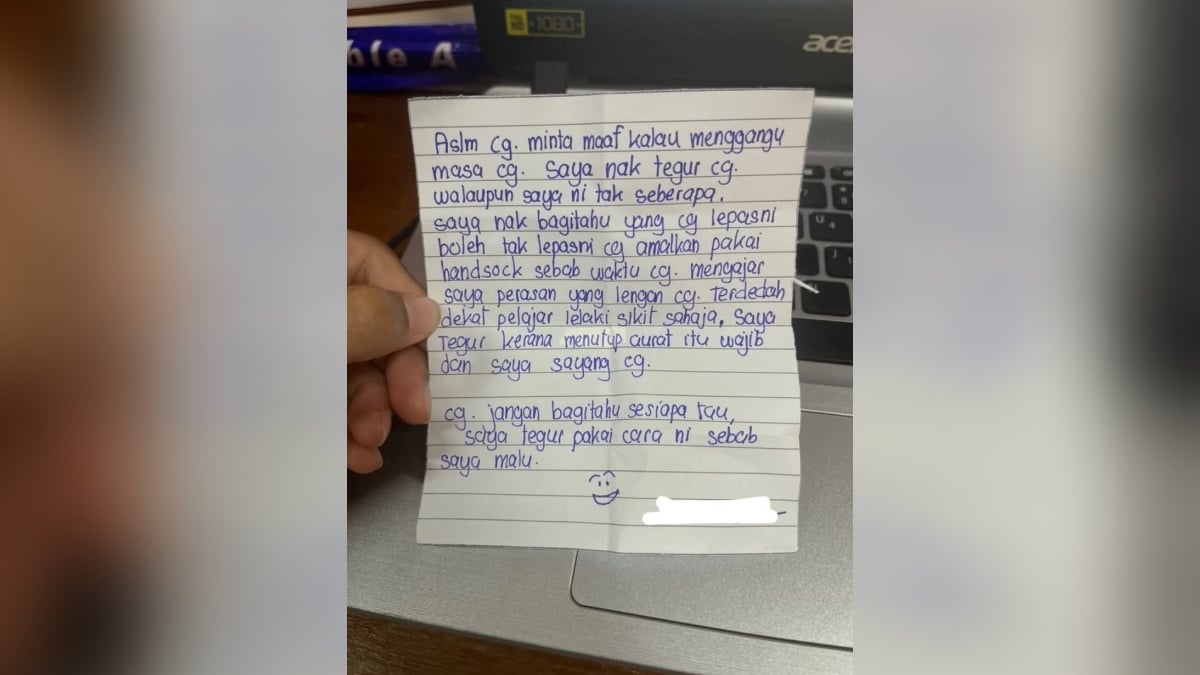 1080
acer
ble A
Aslm cg. minta maaf kalau menggangu
masa cg. saya nak tegur cg.
walaupun saya ni tak seberapa.
saya nak bagitahu yang cg lepasni
boleh tak lepasni cg amalkan pakai
handsock sebab waktu cg. mengajar
saya perasan yang lengan cg. terdedah
dekat pelajar lelaki sikit sahaja, saya
tegur kerana menutup aurat itu wajib
dan saya sayang cg.
cg. jangan bagitahu sesiapa tau,
saya tegur pakai cara ni sebab
saya malu.